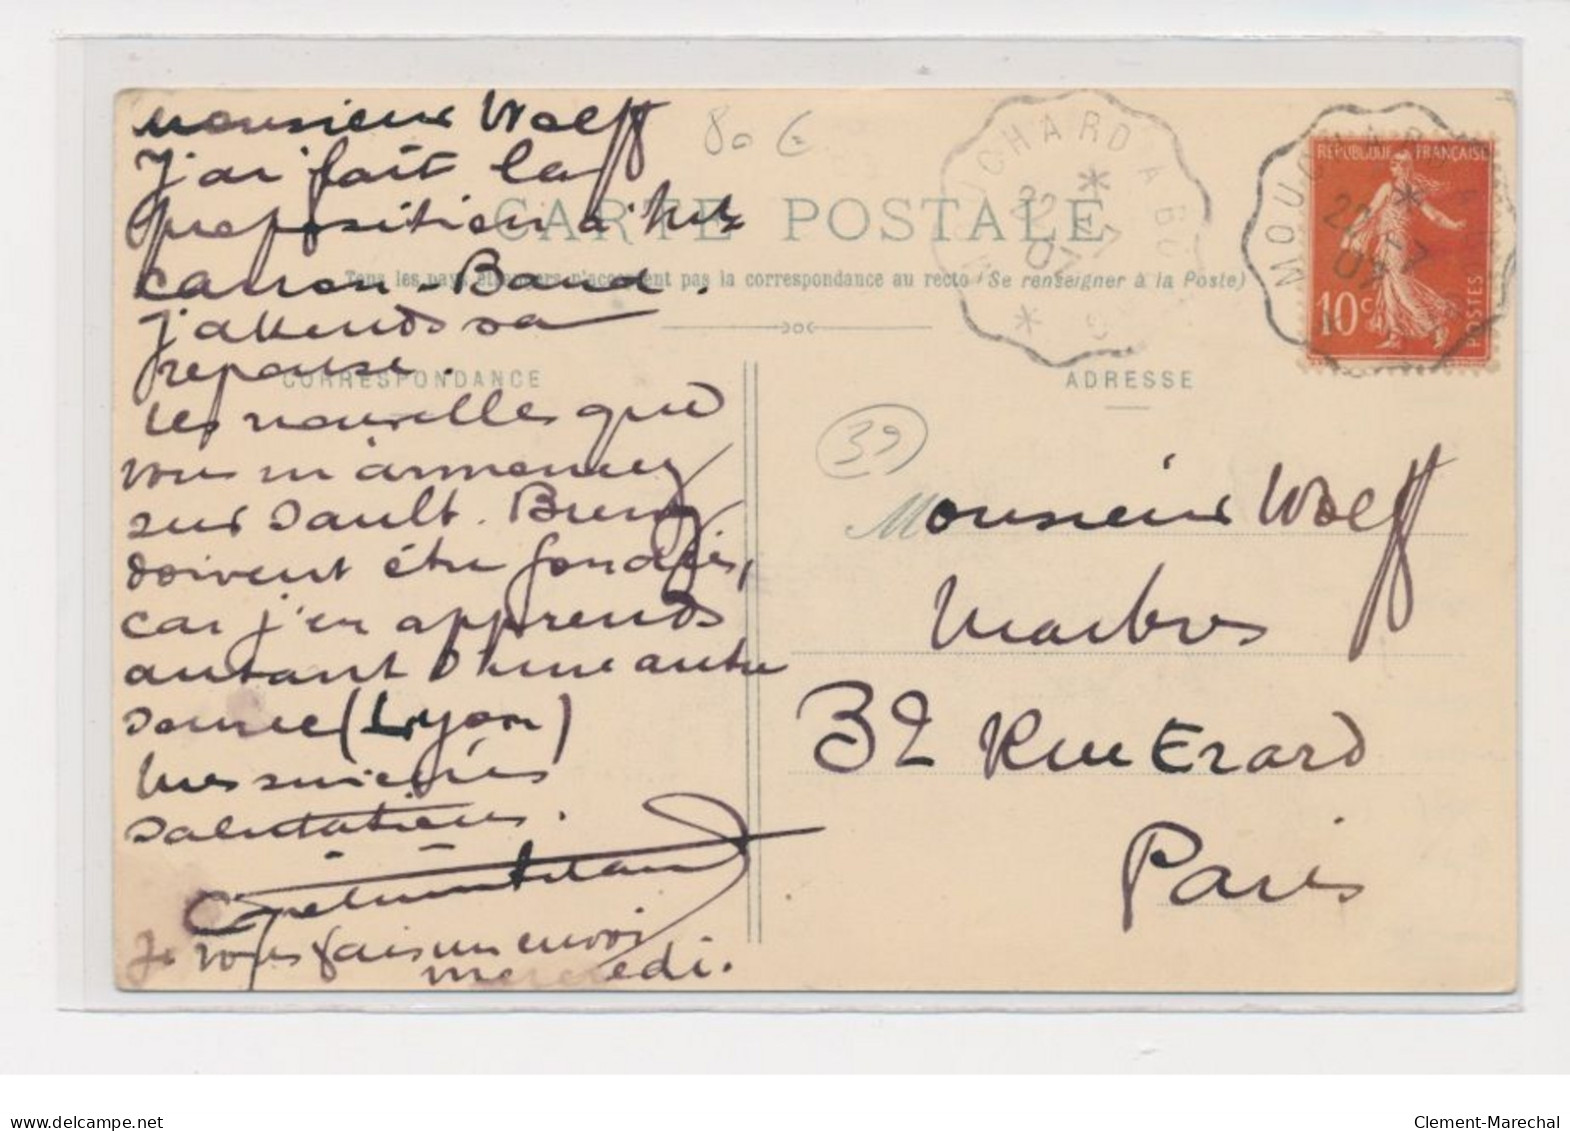 monsieur Wolff
J'ai fait la
proposition à
carron-Baud.
J'attends sa
reponse.
Les nouvelles que
vous m'annoncez
sur Sault. Brenaz
doivent être fondées,
car j'en apprends
autant d'une autre
source (Lyon)
mes sincères
salutations.
Je vous fais un envoi
mercredi.
80 €
CARTE POSTALE
Tous les pays étrangers n'acceptent pas la correspondance au recto (Se renseigner à la Poste)
CORRESPONDANCE
ADRESSE
MOUCHARD A BO
22 -7
07
REPUBLIQUE FRANÇAISE
10c
POSTES
MOUCHARD A
22 -7
07
39
Monsieur Wolff
Marbres
32 Rue Erard
Paris
www.delcampe.net
Clement-Marechal